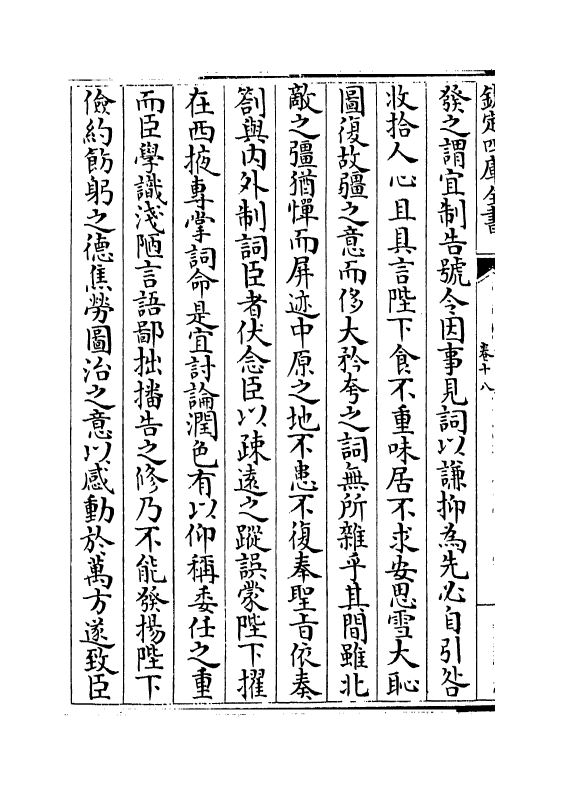 欽定四庫全書
卷十八
發之謂宜制告號令因事見詞以謙抑為先必自引咎
收拾人心且具言陛下食不重味居不求安思雪大恥
圖復故疆之意而侈大矜夸之詞無所雜乎其間雖北
敵之彊猶憚而屏迹中原之地不患不復奉聖旨依奏
劄與内外制詞臣者伏念臣以疎逺之蹤誤蒙陛下擢
在西掖專掌詞命是宜討論潤色有以仰稱委任之重
而臣學識淺陋言語鄙拙播告之修乃不能發揚陛下
儉約飭躬之德焦勞圖治之意以感動於萬方遂致臣